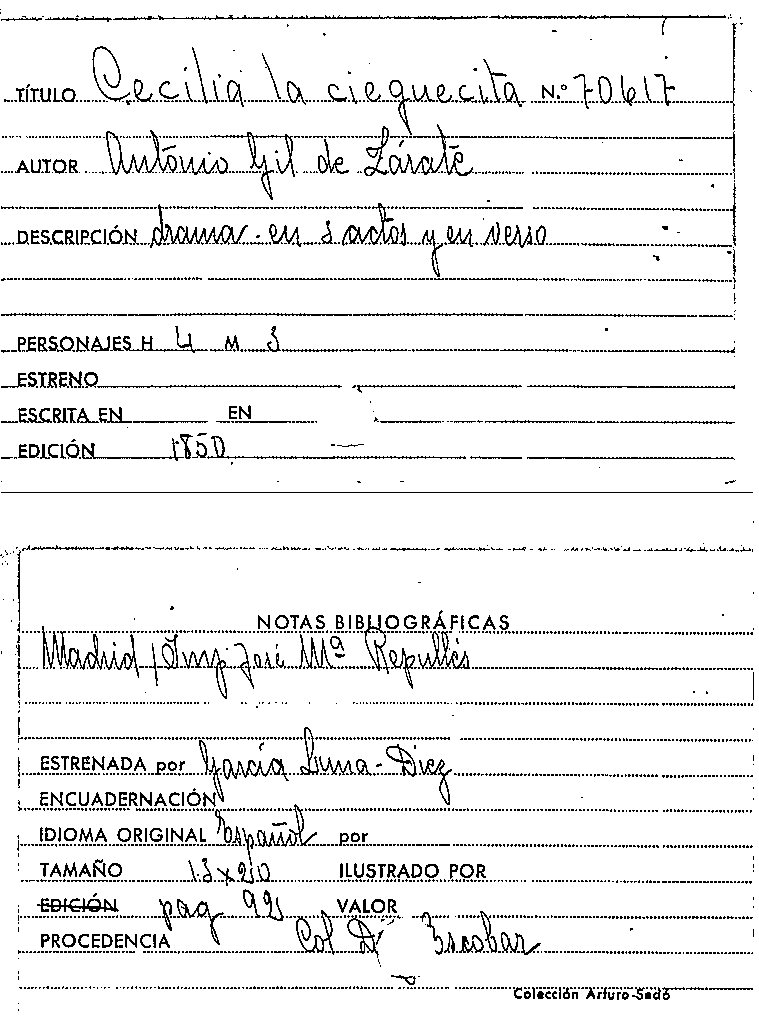 TÍTULO Cecilia la cieguecita N.º 70617
AUTOR Antonio Gil de Zárate
DESCRIPCIÓN drama en 3 actos y en verso
PERSONAJES H 4 M 3
ESTRENO
ESCRITA EN EN
EDICIÓN 1850
NOTAS BIBLIOGRÁFICAS
Madrid / Imp José Mª Repullés
ESTRENADA por García Luna - Diez
ENCUADERNACIÓN
IDIOMA ORIGINAL Español por
TAMAÑO 13 x 20
ILUSTRADO POR
EDICIÓN pag VALOR
PROCEDENCIA Col Escobar
Colección Arturo-Sedó